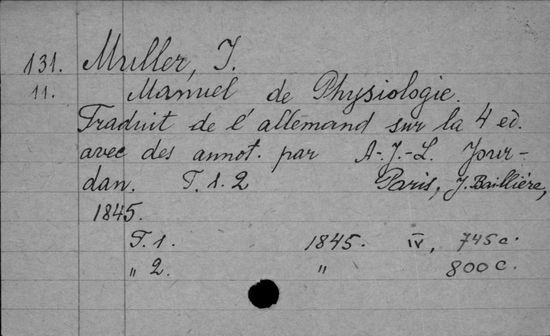 131. Muller, J.
11. Manuel de Physiologie.
Traduit de l'allemand sur la 4 ed.
avec des annot. par A.-J.-L. Jour-
dan. T. 1. 2 Paris, J. Baillière,
1845.
T. 1. 1845. IV, 745 c.
„ 2. „ 800 c.